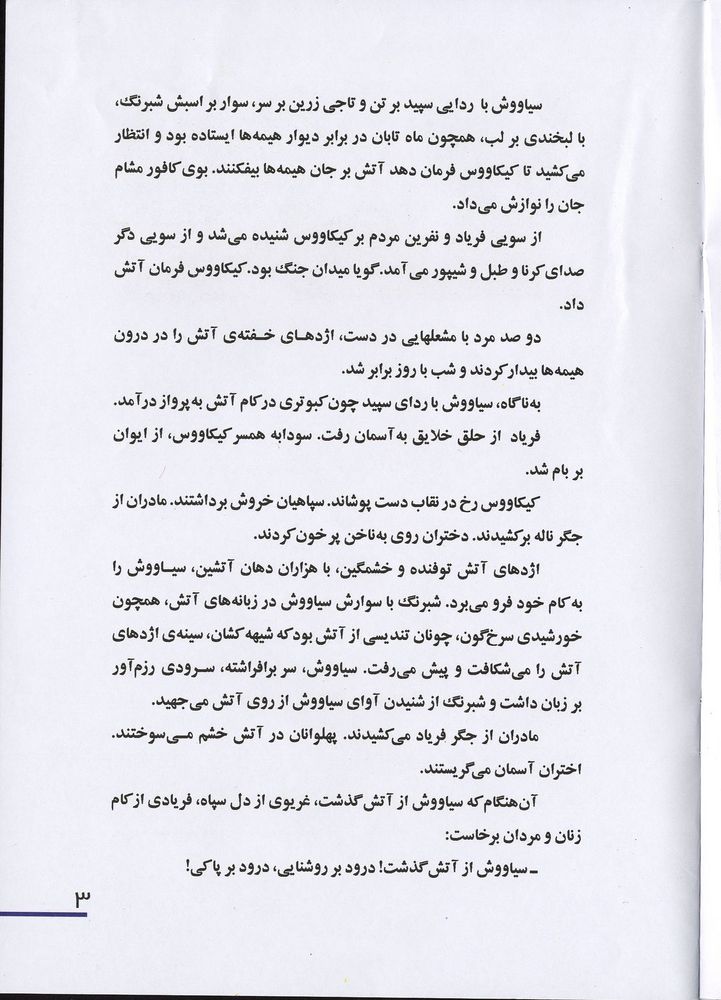 سیاووش با ردایی سپید بر تن و تاجی زرین بر سر، سوار بر اسبش شبرنگ،
با لبخندی بر لب، همچون ماه تابان در برابر دیوار هیمه‌ها ایستاده بود و انتظار
می‌کشید تا کیکاووس فرمان دهد آتش بر جان هیمه‌ها بیفکنند. بوی کافور مشام
جان را نوازش می‌داد.
از سویی فریاد و نفرین مردم بر کیکاووس شنیده می‌شد و از سویی دگر
صدای کرنا و طبل و شیپور می‌آمد. گویا میدان جنگ بود. کیکاووس فرمان آتش
داد.
دو صد مرد با مشعلهایی در دست، اژدهـای خـفته‌ی آتش را در درون
هیمه‌ها بیدار کردند و شب با روز برابر شد.
به‌ناگاه، سیاووش با ردای سپید چون کبوتری در کام آتش به پرواز درآمد.
فریاد از حلق خلایق به آسمان رفت. سودابه همسر کیکاووس، از ایوان
بر بام شد.
کیکاووس رخ در نقاب دست پوشاند. سپاهیان خروش برداشتند. مادران از
جگر ناله برکشیدند. دختران روی به‌ناخن پر خون کردند.
اژدهای آتش توفنده و خشمگین، با هزاران دهان آتشین، سیـاووش را
به کام خود فرو می‌برد. شبرنگ با سوارش سیاووش در زبانه‌های آتش، همچون
خورشیدی سرخ‌گون، چونان تندیسی از آتش بود که شیهه کشان، سینه‌ی اژدهای
آتش را می‌شکافت و پیش می‌رفت. سیاووش، سر برافراشته، سـرودی رزم‌آور
بر زبان داشت و شبرنگ از شنیدن آوای سیاووش از روی آتش می‌جهید.
مادران از جگر فریاد می‌کشیدند. پهلوانان در آتش خشم مـی‌سوختند.
اختران آسمان می‌گریستند.
آن‌هنگام که سیاووش از آتش گذشت، غریوی از دل سپاه، فریادی از کام
زنان و مردان برخاست:
ـ سیاووش از آتش گذشت! درود بر روشنایی، درود بر پاکی!
۳